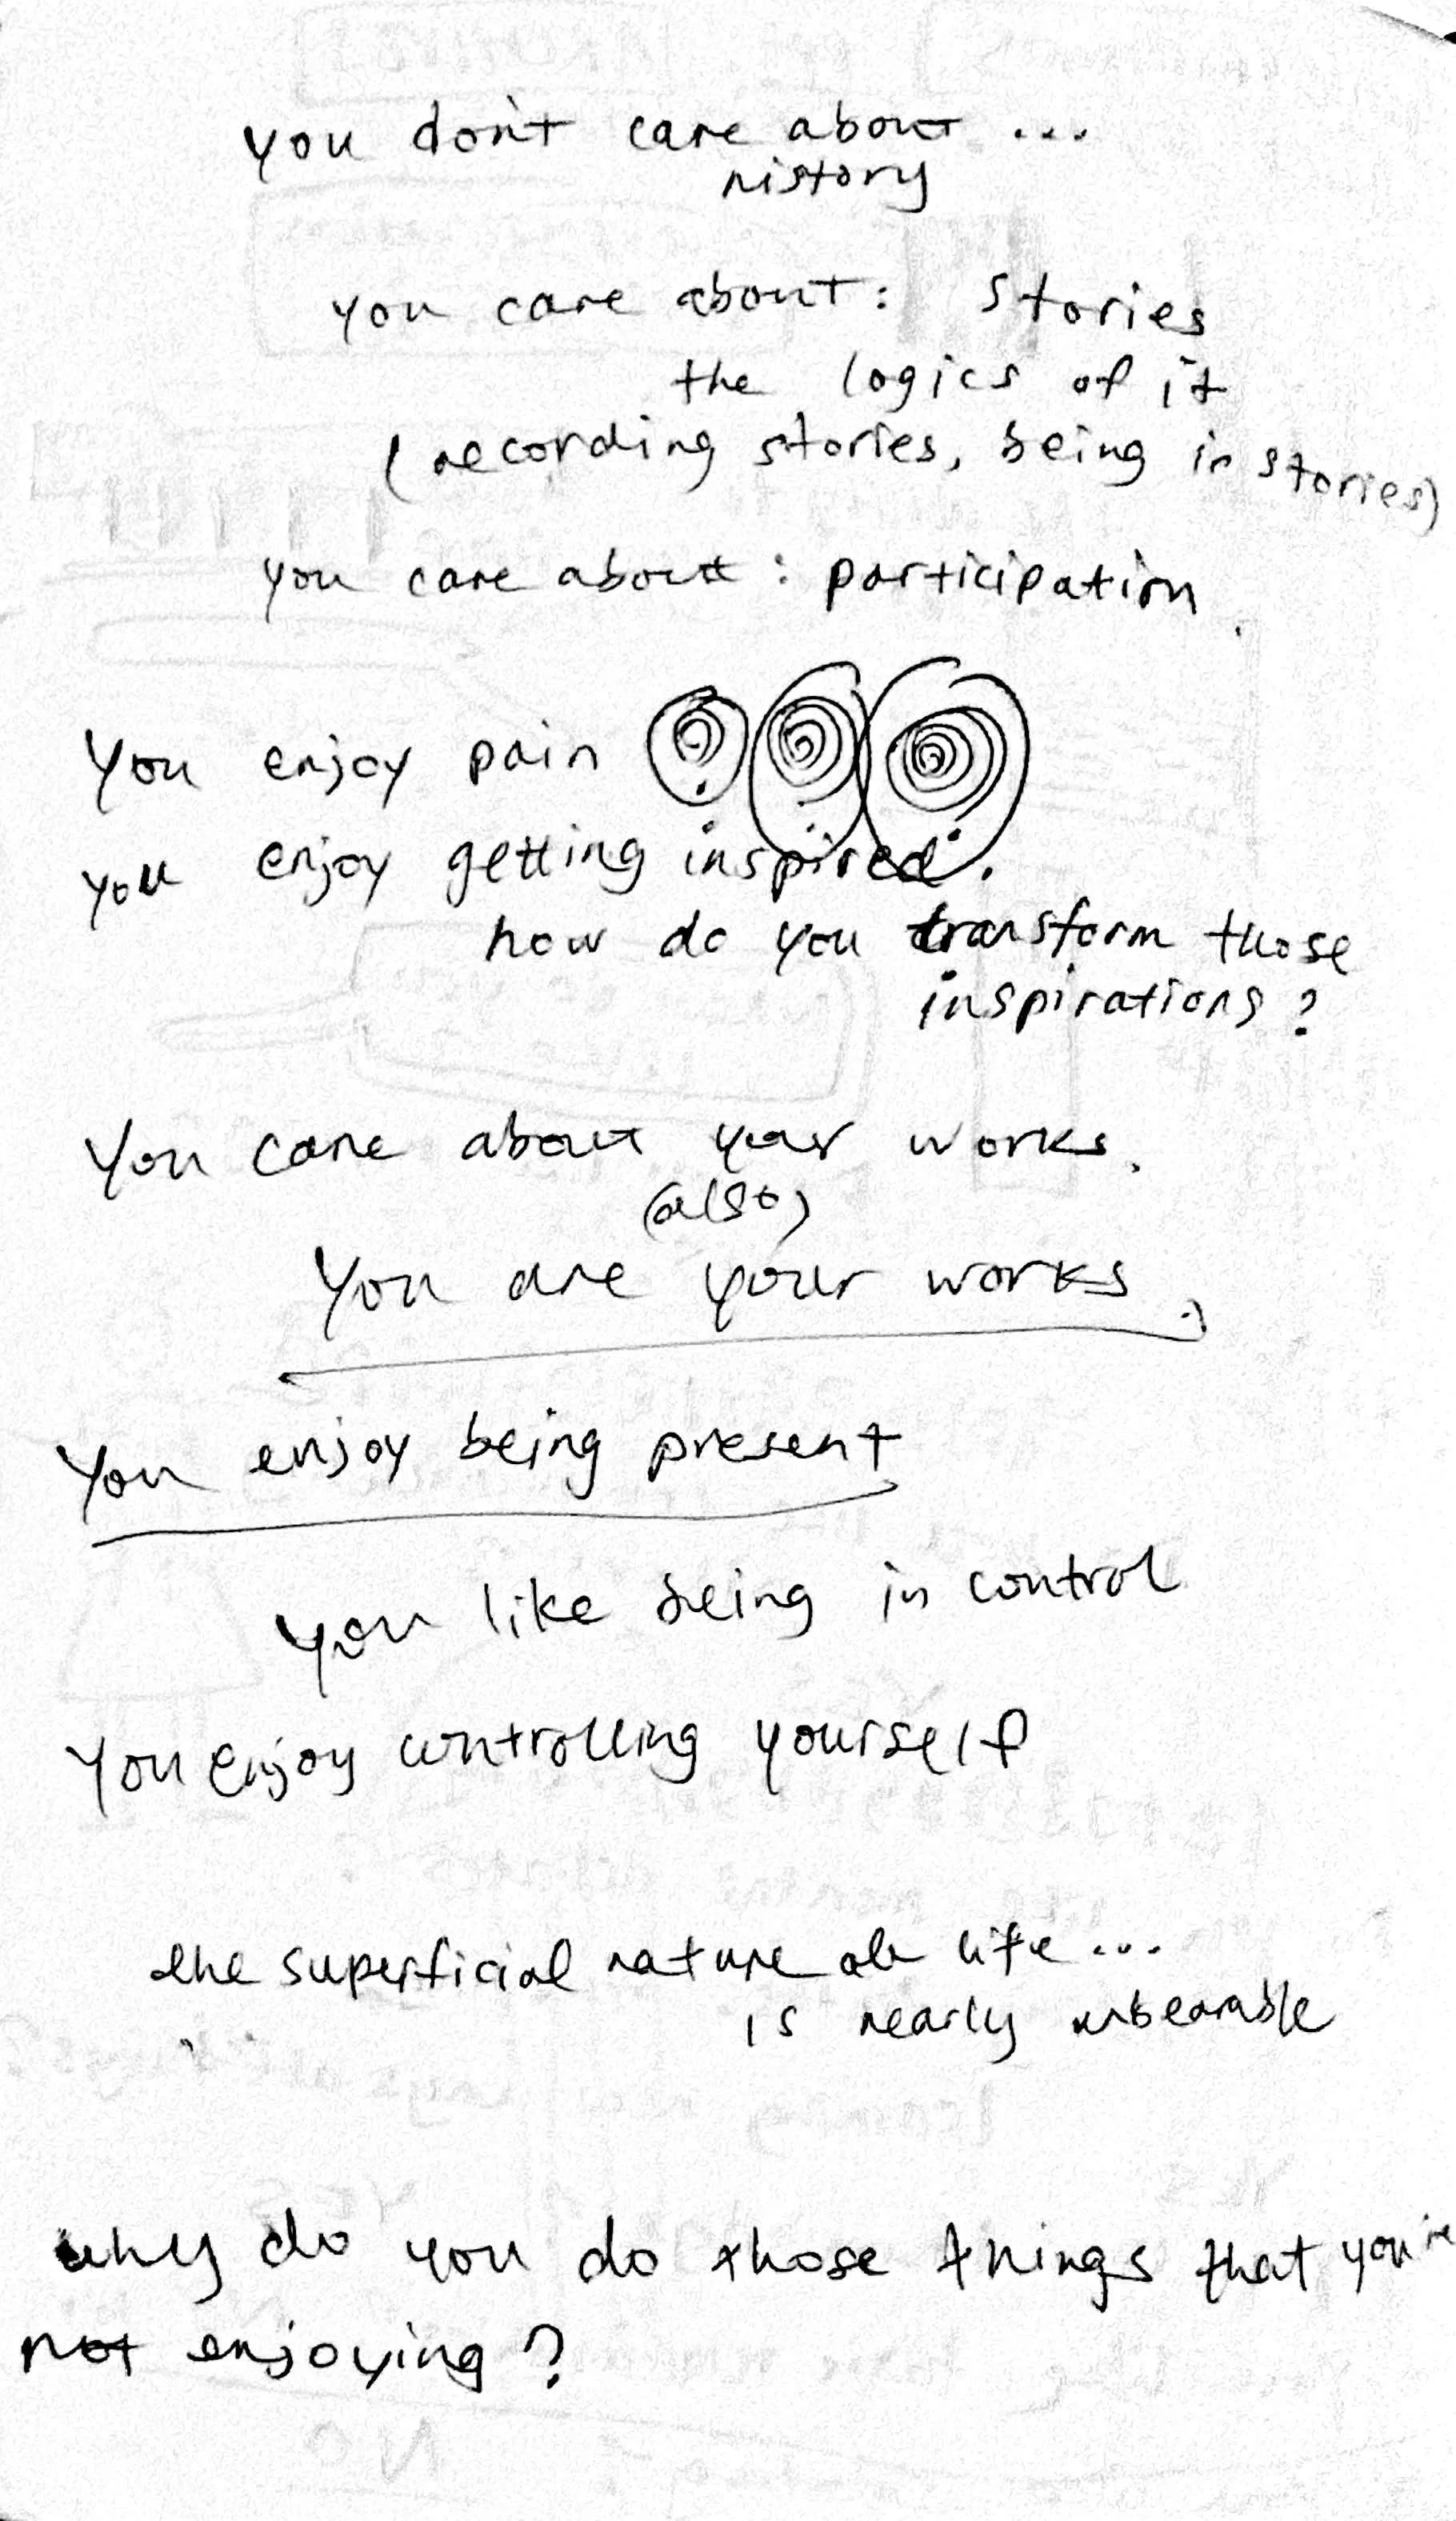 you don't care about ...
history
you care about: stories
the logics of it
(recording stories, being in stories)
you care about: participation.
You enjoy pain
you enjoy getting inspired.
how do you transform those
inspirations?
You care about your works.
(also)
You are your works.
You enjoy being present
you like being in control
You enjoy controlling yourself
the superficial nature of life ...
is nearly unbearable
why do you do those things that you're
not enjoying?